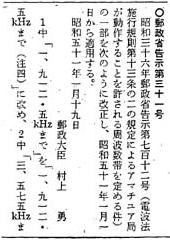 ○郵政省告示第三十一号
昭和三十六年郵政省告示第七百十二号(電波法
施行規則第十三条の二の規定によるアマチュア局
が動作することを許される周波数帯を定める件)
の一部を次のように改正し、昭和五十一年一月一
日から適用する。
昭和五十一年一月十九日
郵政大臣 村上 勇
1中「一、九一二・五kHzまで」を「一、九一二・
五kHzまで(注四)」に改め、2中「三、五七五kHz